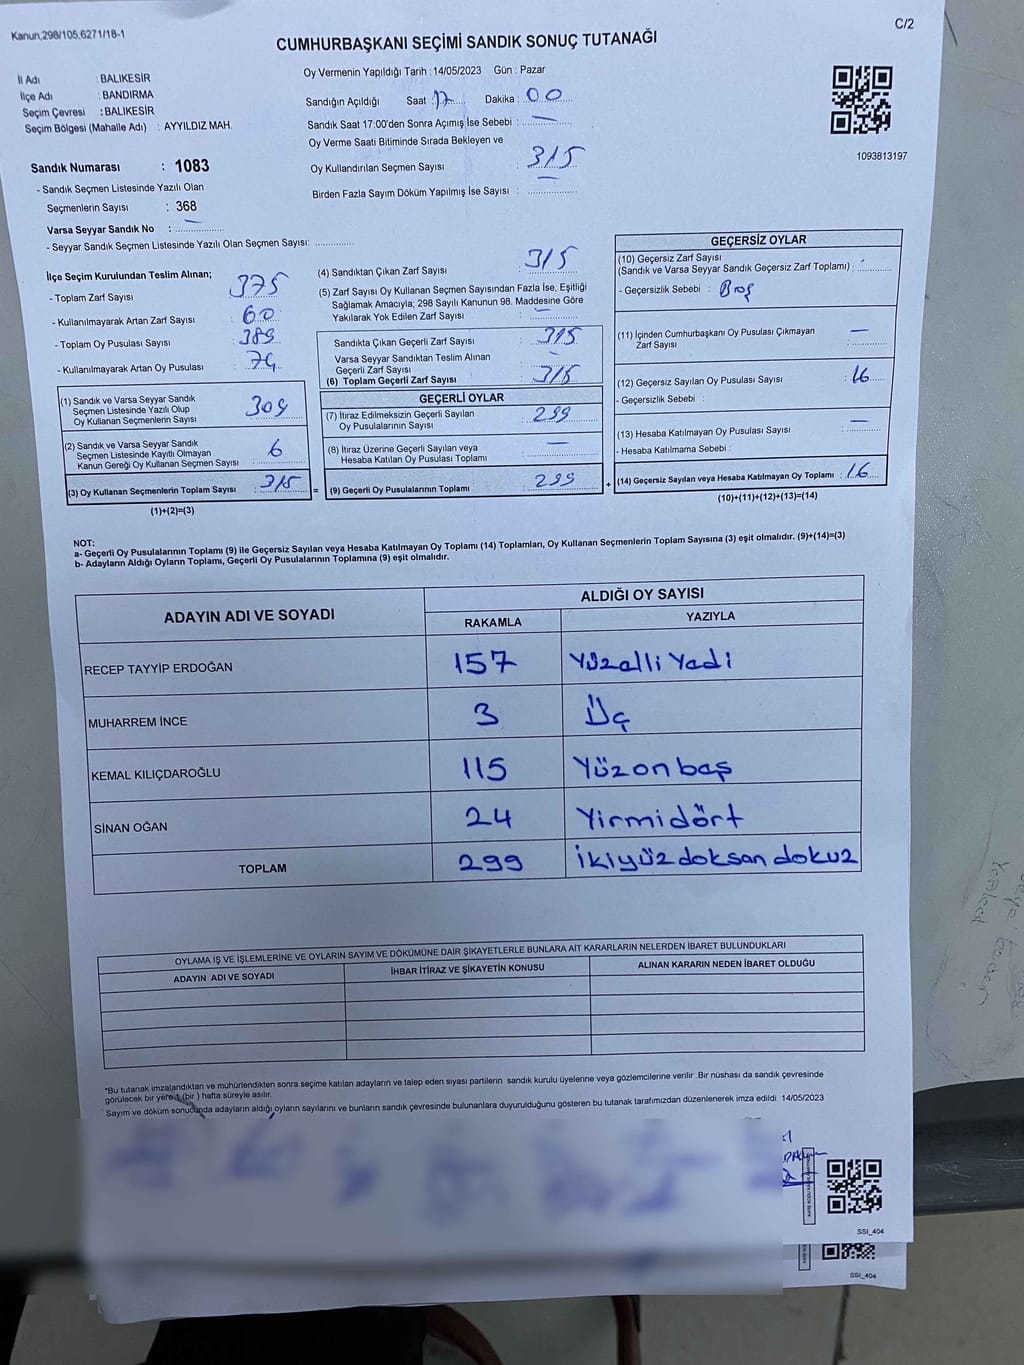 Kanun.298/105,6271/18-1
C/2
CUMHURBAŞKANI SEÇİMİ SANDIK SONUÇ TUTANAĞI
İl Adı : BALIKESİR
İlçe Adı : BANDIRMA
Seçim Çevresi : BALIKESİR
Seçim Bölgesi (Mahalle Adı) : AYYILDIZ MAH.
Oy Vermenin Yapıldığı Tarih : 14/05/2023 Gün : Pazar
Sandığın Açıldığı Saat : 17 Dakika : 00
Sandık Saat 17:00'den Sonra Açımış İse Sebebi : —
Oy Verme Saati Bitiminde Sırada Bekleyen ve
Oy Kullandırılan Seçmen Sayısı : 315
Birden Fazla Sayım Döküm Yapılmış İse Sayısı : —
1093813197
Sandık Numarası : 1083
- Sandık Seçmen Listesinde Yazılı Olan
Seçmenlerin Sayısı : 368
Varsa Seyyar Sandık No : —
- Seyyar Sandık Seçmen Listesinde Yazılı Olan Seçmen Sayısı:
İlçe Seçim Kurulundan Teslim Alınan;
- Toplam Zarf Sayısı : 375
- Kullanılmayarak Artan Zarf Sayısı : 60
- Toplam Oy Pusulası Sayısı : 389
- Kullanılmayarak Artan Oy Pusulası : 74
(1) Sandık ve Varsa Seyyar Sandık
Seçmen Listesinde Yazılı Olup
Oy Kullanan Seçmenlerin Sayısı : 309
(2) Sandık ve Varsa Seyyar Sandık
Seçmen Listesinde Kayıtlı Olmayan
Kanun Gereği Oy Kullanan Seçmen Sayısı : 6
(3) Oy Kullanan Seçmenlerin Toplam Sayısı : 315 =
(1)+(2)=(3)
(4) Sandıktan Çıkan Zarf Sayısı : 315
(5) Zarf Sayısı Oy Kullanan Seçmen Sayısından Fazla İse, Eşitliği
Sağlamak Amacıyla; 298 Sayılı Kanunun 98. Maddesine Göre
Yakılarak Yok Edilen Zarf Sayısı : —
Sandıkta Çıkan Geçerli Zarf Sayısı : 315
Varsa Seyyar Sandıktan Teslim Alınan
Geçerli Zarf Sayısı : —
(6) Toplam Geçerli Zarf Sayısı : 315
GEÇERLİ OYLAR
(7) İtiraz Edilmeksizin Geçerli Sayılan
Oy Pusulalarının Sayısı : 299
(8) İtiraz Üzerine Geçerli Sayılan veya
Hesaba Katılan Oy Pusulası Toplamı : —
(9) Geçerli Oy Pusulalarının Toplamı : 299 +
GEÇERSİZ OYLAR
(10) Geçersiz Zarf Sayısı
(Sandık ve Varsa Seyyar Sandık Geçersiz Zarf Toplamı) :
- Geçersizlik Sebebi : Boş
(11) İçinden Cumhurbaşkanı Oy Pusulası Çıkmayan
Zarf Sayısı : —
(12) Geçersiz Sayılan Oy Pusulası Sayısı : 16
- Geçersizlik Sebebi :
(13) Hesaba Katılmayan Oy Pusulası Sayısı : —
- Hesaba Katılmama Sebebi :
(14) Geçersiz Sayılan veya Hesaba Katılmayan Oy Toplamı : 16
(10)+(11)+(12)+(13)=(14)
NOT:
a- Geçerli Oy Pusulalarının Toplamı (9) ile Geçersiz Sayılan veya Hesaba Katılmayan Oy Toplamı (14) Toplamları, Oy Kullanan Seçmenlerin Toplam Sayısına (3) eşit olmalıdır. (9)+(14)=(3)
b- Adayların Aldığı Oyların Toplamı, Geçerli Oy Pusulalarının Toplamına (9) eşit olmalıdır.
ADAYIN ADI VE SOYADI
ALDIĞI OY SAYISI
RAKAMLA YAZIYLA
RECEP TAYYİP ERDOĞAN 157 Yüzelli Yedi
MUHARREM İNCE 3 Üç
KEMAL KILIÇDAROĞLU 115 Yüzonbeş
SİNAN OĞAN 24 Yirmidört
TOPLAM 299 İkiyüz doksan dokuz
OYLAMA İŞ VE İŞLEMLERİNE VE OYLARIN SAYIM VE DÖKÜMÜNE DAİR ŞİKAYETLERLE BUNLARA AİT KARARLARIN NELERDEN İBARET BULUNDUKLARI
ADAYIN ADI VE SOYADI İHBAR İTİRAZ VE ŞİKAYETİN KONUSU ALINAN KARARIN NEDEN İBARET OLDUĞU
*Bu tutanak imzalandıktan ve mühürlendikten sonra seçime katılan adayların ve talep eden siyasi partilerin sandık kurulu üyelerine veya gözlemcilerine verilir .Bir nüshası da sandık çevresinde
görülecek bir yere 1 (bir ) hafta süreyle asılır.
Sayım ve döküm sonucunda adayların aldığı oyların sayılarını ve bunların sandık çevresinde bulunanlara duyurulduğunu gösteren bu tutanak tarafımızdan düzenlenerek imza edildi. 14/05/2023
SSİ_404
SSİ_404